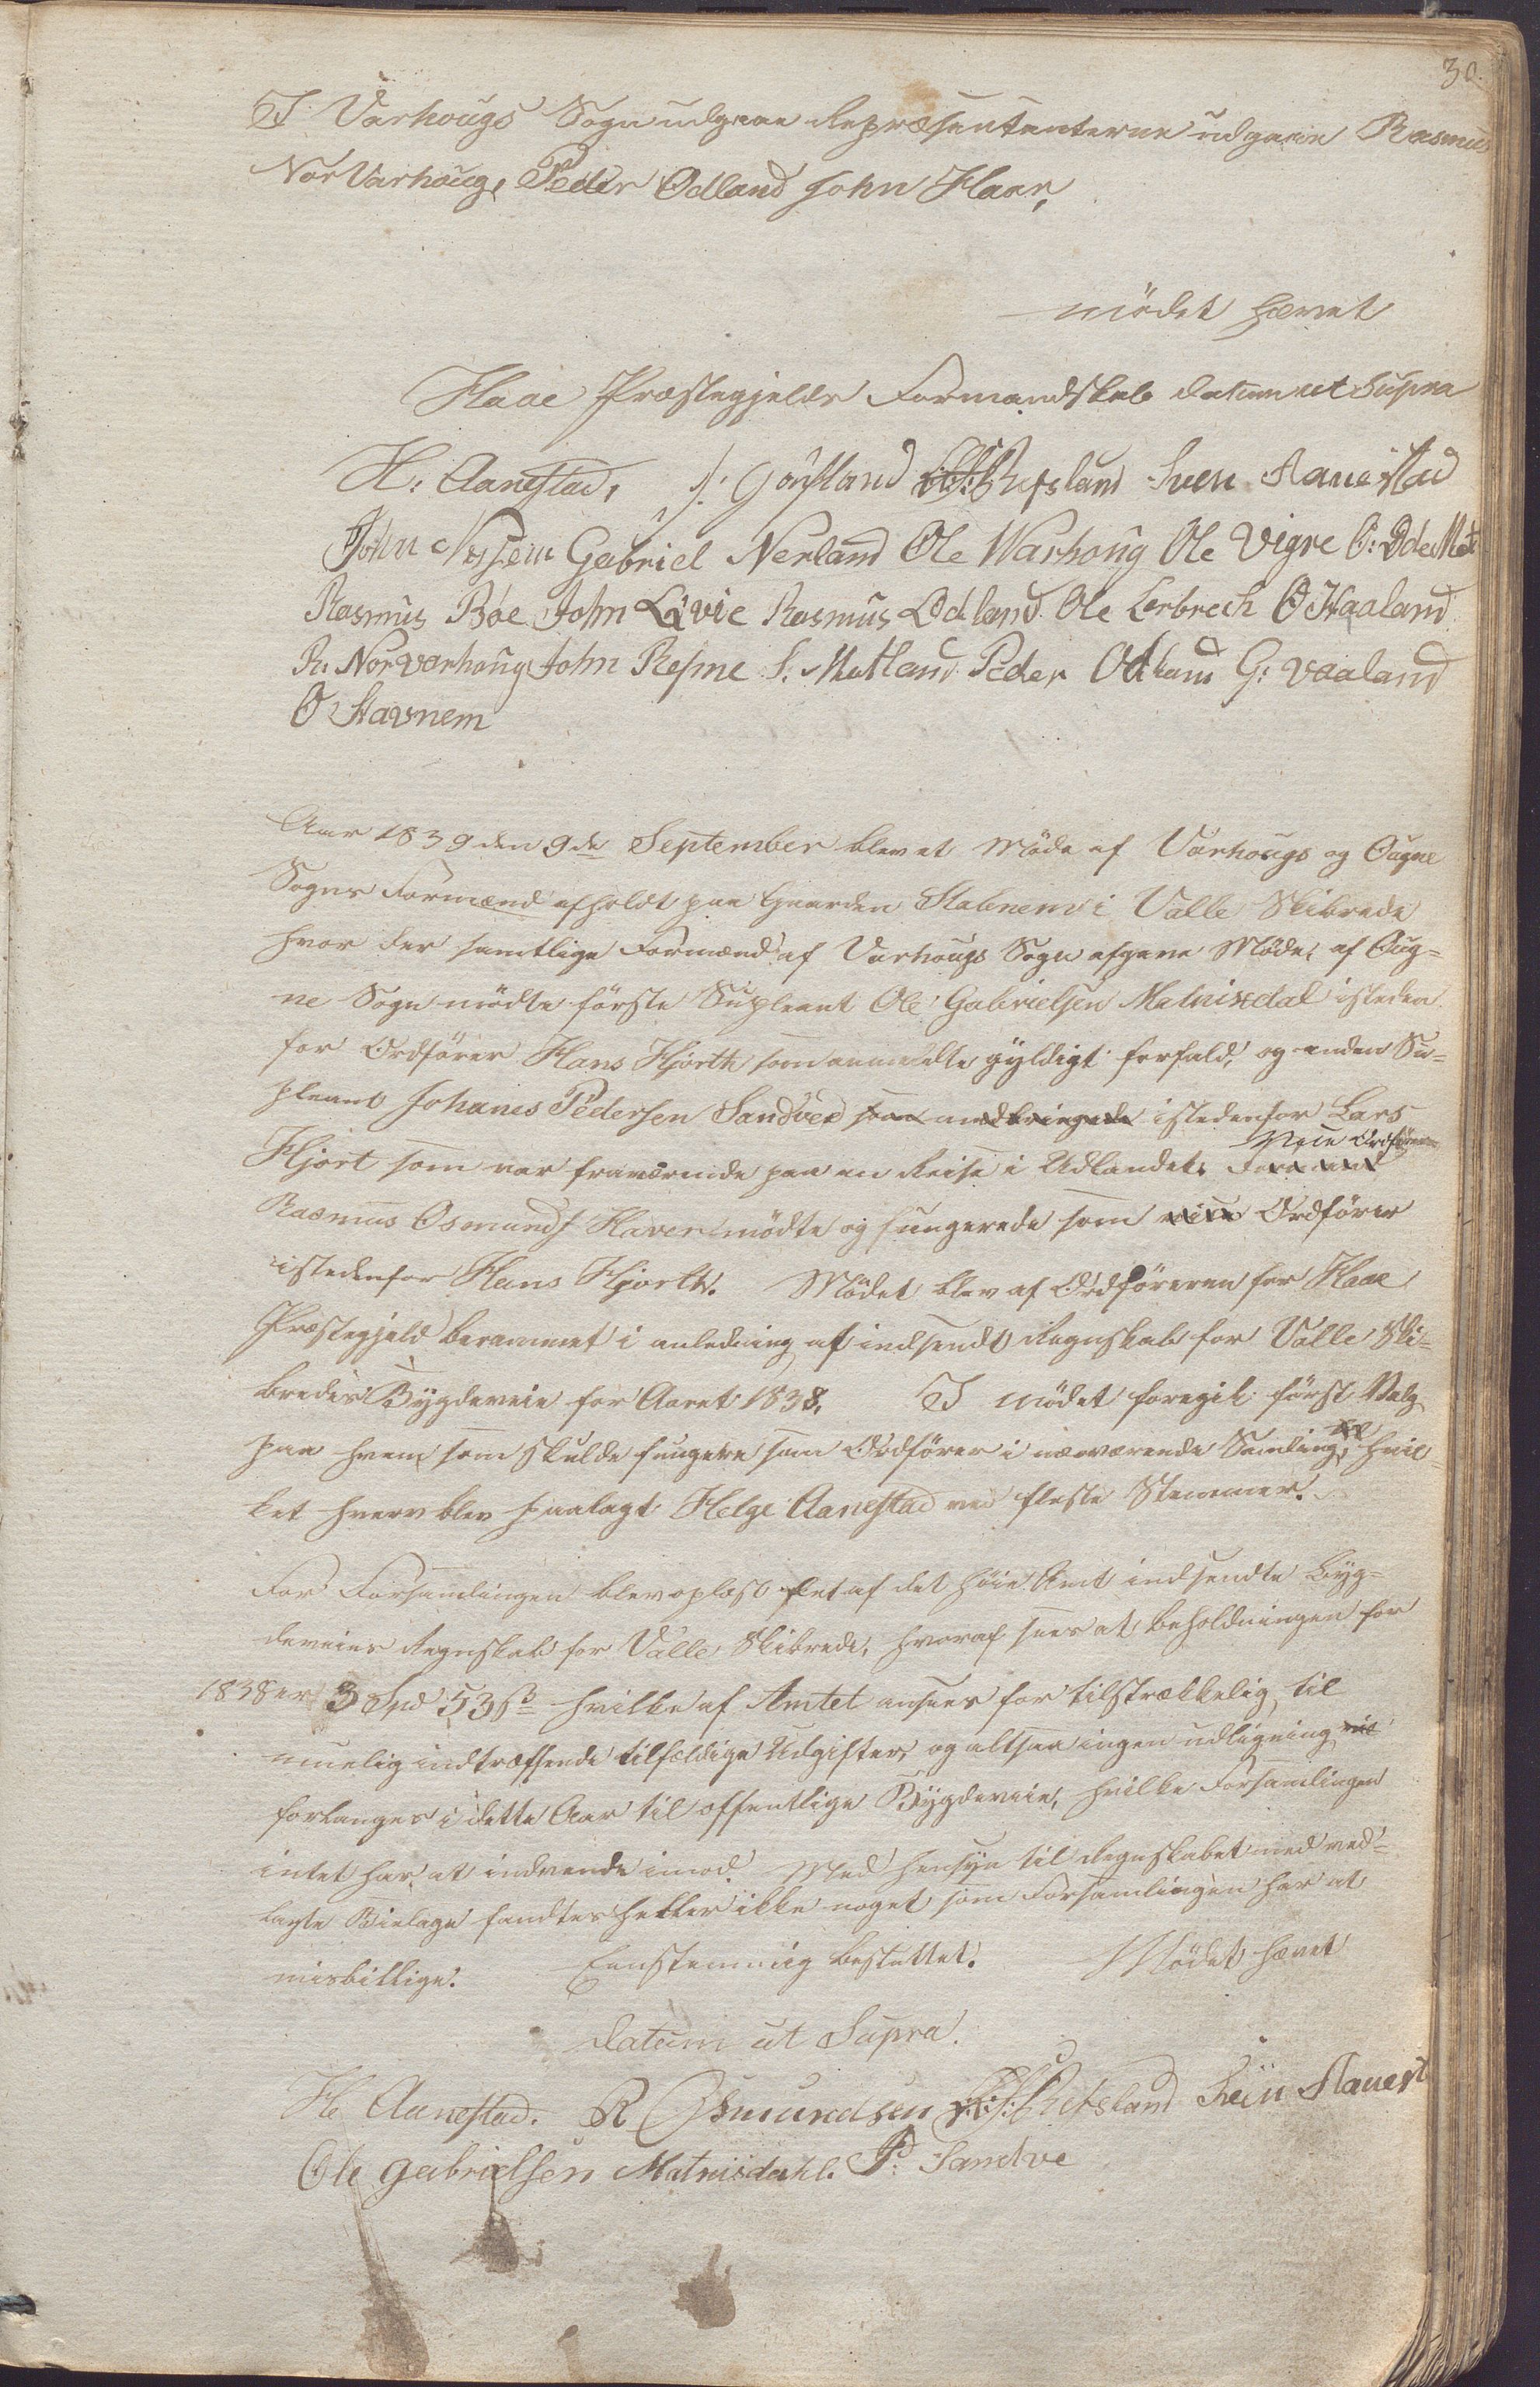 30.
I Varhougs Sogn udgaae Repræsentanterne udgaae Rasmus
Nor Varhoug, Peder Ødland John Haar,
mödet hævet
Haae Præstegjelds Formandskab datum ut Supra
H: Aanestad, J: Goustand Refsland Sven Aanestad
John Nesheim Gabriel Nerland Ole Warhoug Ole Vigre O: Ødemot
Rasmus Böe John Qvie Rasmus Ødland Ole Lerbrech O Haaland
R. Norvarhoug John Refsne S. Motland Peder Odland G: Vaaland
O Stavnem
Aar 1839 den 9de September blev et Möde af Varhougs og Ougne
Sogns Formænd afholdt paa Gaarden Stabnem i Valle Skibrede
hvor der samtlige Formænd af Varhougs Sogn afgave Möde, af Oug=
ne Sogn mödte förste Supleant Ole Gabrielsen Matnisdal isteden
for Ordförer Hans Hjorth som anmeldte gyldigt forfald, og anden Su=
pleant Johanes Pedersen Sandved som medbringede istedenfor Lars
Hjort som var fraværende paa en Reise i Udlandet. Formand Vice Ordförer
Rasmus Osmunds Haver mödte og fungerede som vice Ordförer
istedenfor Hans Hjorth. Mödet blev af Ordföreren for Haae
Præstegjeld berammet i anledning af indsendt Regnskab for Valle Ski=
bredes Bygdeveie for Aaret 1838. I mödet foregik först Valg
paa hvem som skulde fungere som Ordförer i nærværende Samling, til hvil=
ket hverv blev paalagt Helge Aanestad ved fleste Stemmer.
For Forsamlingen blev oplæst det af det höie Amt indsendte Byg=
deveies Regnskab for Valle Skibrede, hvoraf sees at beholdningen for
1838 er 3 Spd 53 s hvilke af Amtet ansees for tilstrækkelig til
muelig indtræffende tilfældige Udgifter, og altsaa ingen udligning
forlanges i dette Aar til offentlige Bygdeveie, hvilke Forsamlingen
intet har at indvende imod. Med hensyn til Regnskabet med ved=
lagte Bielage fandtes heller ikke noget som Forsamlingen har at
misbillige. Eenstemmig besluttet. Mödet hævet
datum ut Supra.
H Aanestad. R Osmundsen Refsland Svein Aanest
Ole gabrielsen Matnisdahl. P: Sandve